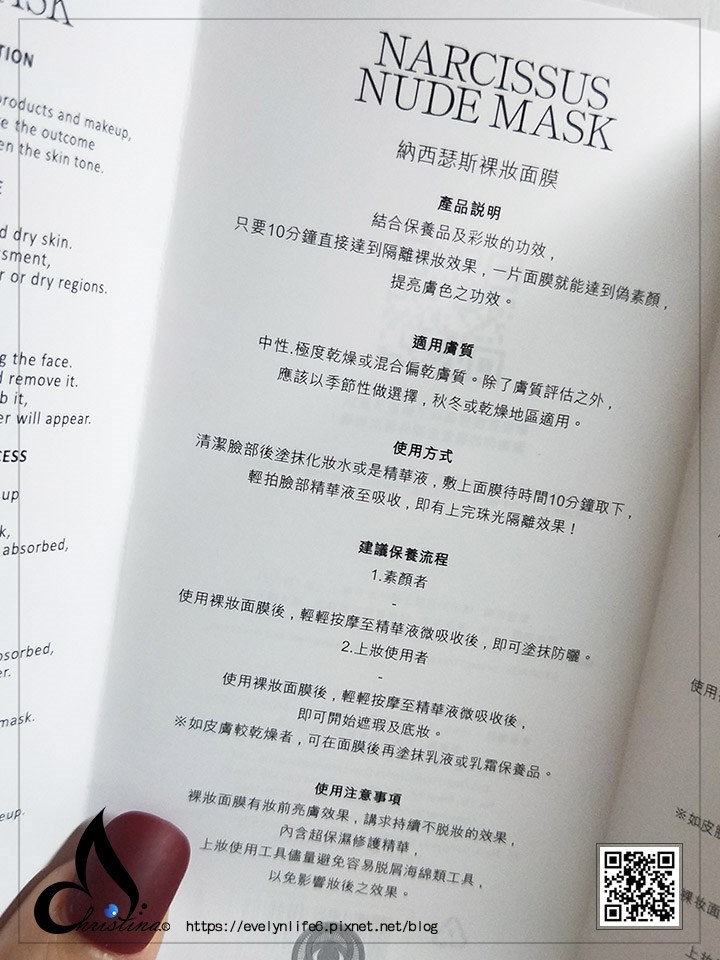 ASK
TION
products and makeup,
e the outcome
en the skin tone.
E
d dry skin.
sment,
r or dry regions.
g the face.
d remove it.
b it,
er will appear.
CESS
up
k,
absorbed,
osorbed,
er.
mask.
eup.
NARCISSUS
NUDE MASK
納西瑟斯裸妝面膜
產品説明
結合保養品及彩妝的功效，
只要10分鐘直接達到隔離裸妝效果，一片面膜就能達到偽素顏，
提亮膚色之功效。
適用膚質
中性.極度乾燥或混合偏乾膚質。除了膚質評估之外，
應該以季節性做選擇，秋冬或乾燥地區適用。
使用方式
清潔臉部後塗抹化妝水或是精華液，敷上面膜待時間10分鐘取下，
輕拍臉部精華液至吸收，即有上完珠光隔離效果！
建議保養流程
1.素顏者
-
使用裸妝面膜後，輕輕按摩至精華液微吸收後，即可塗抹防曬。
2.上妝使用者
-
使用裸妝面膜後，輕輕按摩至精華液微吸收後，
即可開始遮瑕及底妝。
※如皮膚較乾燥者，可在面膜後再塗抹乳液或乳霜保養品。
使用注意事項
裸妝面膜有妝前亮膚效果，講求持續不脱妝的效果，
內含超保濕修護精華，
上妝使用工具儘量避免容易脱屑海綿類工具，
以免影響妝後之效果。
使用
※如皮膚
裸妝面
上妝
Christina©
https://evelynlife6.pixnet.net/blog